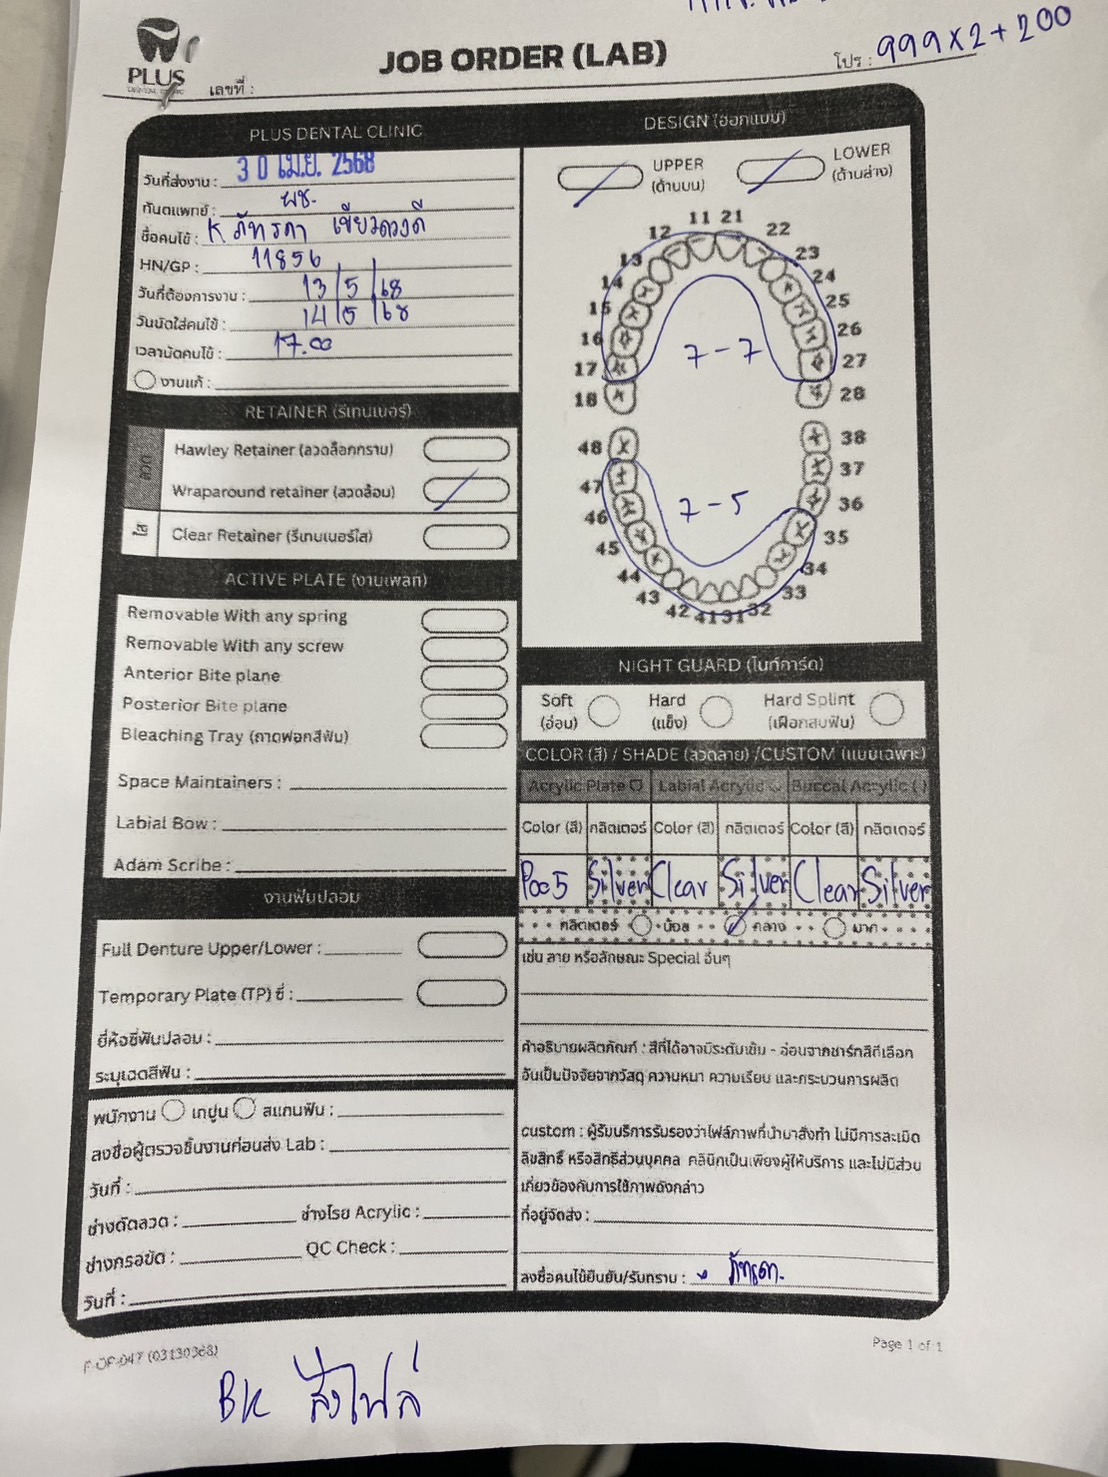 JOB ORDER (LAB)
โปร : 999x2+200
PLUS
เลขที่ :
PLUS DENTAL CLINIC
วันที่ส่งงาน : 30 เม.ย. 2568
ทันตแพทย์ : ผช.
ชื่อคนไข้ : K ภัทรดา เขียวดวงดี
HN/GP : 11856
วันที่ต้องการงาน : 13/5/68
วันนัดใส่คนไข้ : 14/5/68
เวลานัดคนไข้ : 17.00
งานแก้ :
RETAINER (รีเทนเนอร์)
Hawley Retainer (ลวดล็อกกราม)
Wraparound retainer (ลวดล้อม)
Clear Retainer (รีเทนเนอร์ใส)
ACTIVE PLATE (งานเพลท)
Removable With any spring
Removable With any screw
Anterior Bite plane
Posterior Bite plane
Bleaching Tray (ถาดฟอกสีฟัน)
Space Maintainers :
Labial Bow :
Adam Scribe :
งานฟันปลอม
Full Denture Upper/Lower :
Temporary Plate (TP) ซี่ :
ยี่ห้อซี่ฟันปลอม :
ระบุเฉดสีฟัน :
พนักงาน เทปูน สแกนฟัน :
ลงชื่อผู้ตรวจชิ้นงานก่อนส่ง Lab :
วันที่ :
ช่างดัดลวด : ช่างโรย Acrylic :
ช่างกรอขัด : QC Check :
วันที่ :
DESIGN (ออกแบบ)
UPPER (ด้านบน) LOWER (ด้านล่าง)
11 21
12 22
13 23
14 24
15 25
16 26
17 7-7 27
18 28
48 38
47 37
46 7-5 36
45 35
44 34
43 33
42 41 31 32
NIGHT GUARD (ไนท์การ์ด)
Soft (อ่อน) Hard (แข็ง) Hard Splint (เฝือกสบฟัน)
COLOR (สี) / SHADE (ลวดลาย) /CUSTOM (แบบเฉพาะ)
Acrylic Plate Labial Acrylic Buccal Acrylic ( )
Color (สี) กลิตเตอร์ Color (สี) กลิตเตอร์ Color (สี) กลิตเตอร์
P005 Silver Clear Silver Clear Silver
กลิตเตอร์ น้อย กลาง มาก
เช่น ลาย หรือลักษณะ Special อื่นๆ
คำอธิบายผลิตภัณฑ์ : สีที่ได้อาจมีระดับเข้ม - อ่อนจากชาร์ทสีที่เลือก
อันเป็นปัจจัยจากวัสดุ ความหนา ความเรียบ และกระบวนการผลิต
custom : ผู้รับบริการรับรองว่าไฟล์ภาพที่นำมาสั่งทำ ไม่มีการละเมิด
ลิขสิทธิ์ หรือสิทธิส่วนบุคคล คลินิกเป็นเพียงผู้ให้บริการ และไม่มีส่วน
เกี่ยวข้องกับการใช้ภาพดังกล่าว
ที่อยู่จัดส่ง :
ลงชื่อคนไข้ยืนยัน/รับทราบ : ภัทรดา
F-OP-047 (03130368)
Page 1 of 1
BK ส่งไฟล์